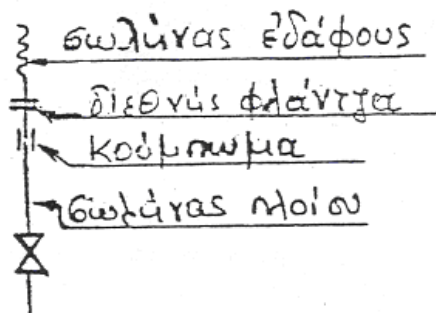 σωλήνας ἐδάφους
διεθνής φλάντζα
κούμπωμα
σωλήνας πλοίου